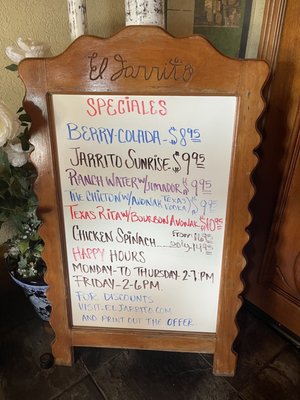 El Jarrito
SPECIALES
BERRY-COLADA-$8.95
JARRITO SUNRISE-$9.95
RANCH WATER W/JIMADOR $9.95
THE CHICTON W/AVONAK TEXAS VODKA $9.95
TEXAS RITA W/BOURBON AVONAK $10.95
CHICKEN SPINACH FROM-
HAPPY HOURS
MONDAY-TO THURSDAY-2-7PM
FRIDAY-2-6PM.
FOR DISCOUNTS
VISIT-ELJARRITO.COM
AND PRINT OUT THE OFFER